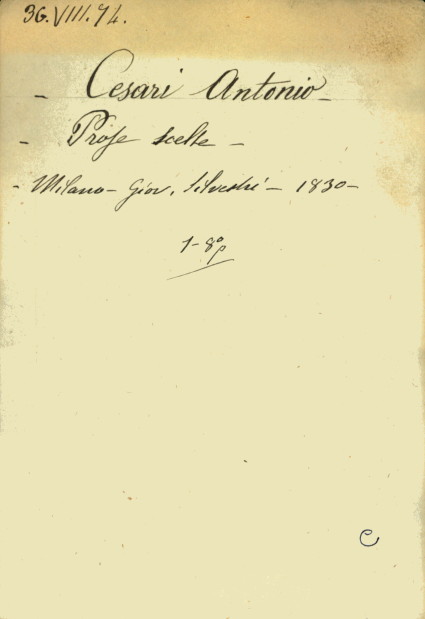 36.VIII.74.
- Cesari Antonio -
- Prose scelte -
- Milano - Giov. Silvestri - 1830 -
1 - 8º p
C